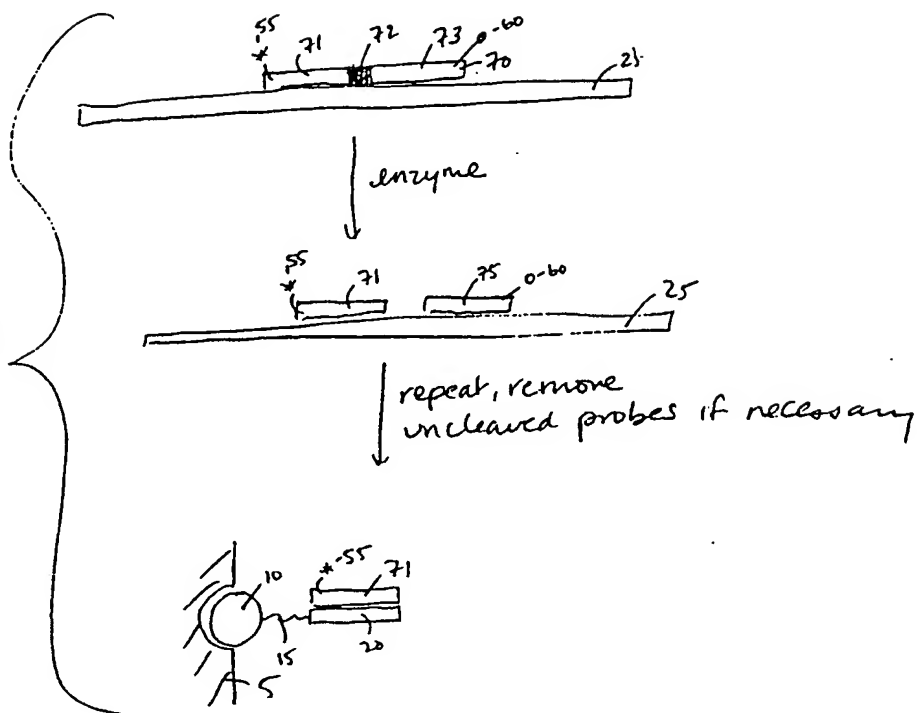 *55 71 72 73 0-60
70 25
enzyme
*55 71 75 0-60
25
repeat, remove
uncleaved probes if necessary
10 *-55 71
15 20
5